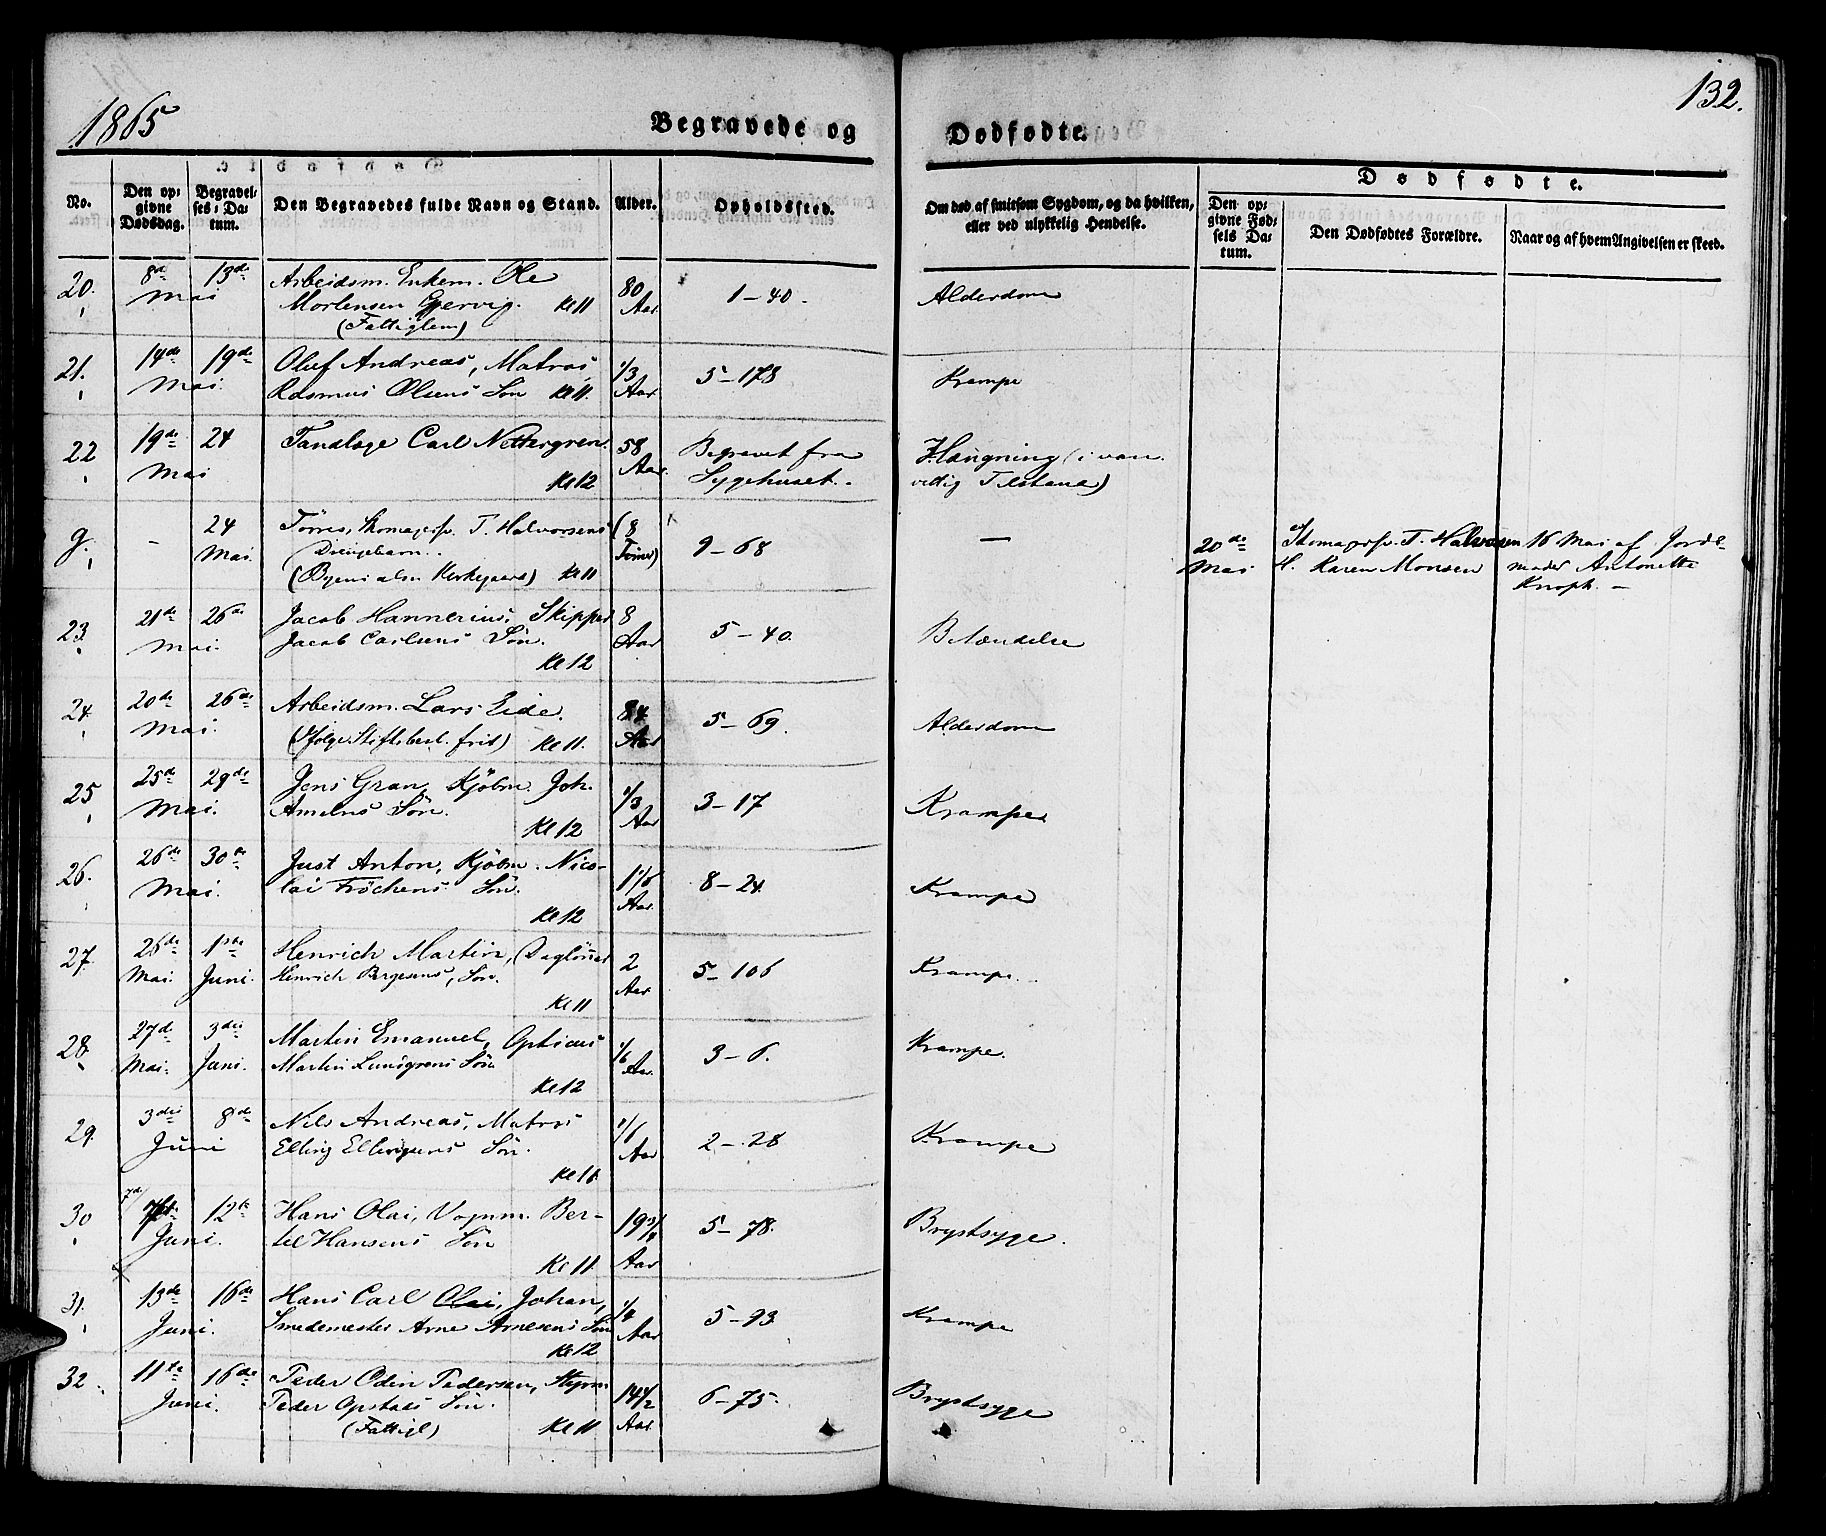 1865
Begravede og
Dødfødte.
132.
No.
Den op=
givne
Dødsdag.
Begravel=
ses=Da=
tum.
Den Begravedes fulde Navn og Stand.
Alder.
Opholdssted.
Om død af smitsom Sygdom, og da hvilken,
eller ved ulykkelig Hendelse.
Dødfødte.
Den op=
givne Fød=
sels Da=
tum.
Den Dødfødtes Forældre.
Naar og af hvem Angivelsen er skeed.
20. 8de 13de Arbeidsm. Enkem. Ole 80 1-40. Alderdom
Mai Mortensen Gjervig. Kl 11 Aar
(Fattiglem)
21. 14de 19de Oluf Andreas, Matros 1/3 5-178 Krampe
Mai. Rasmus Olsens Søn Kl 11. Aar
22 19de 24 Tandlæge Carl Nettergren 58 Begravet fra Hængning (i van
Mai Kl 12 Aar. Sygehuset. vittig Tilstand)
g. - 24 Tørres, Skomagersv. T. Halvorsens (8 9-68 — 20de Skomagersv. T. Halvorsen 16 Mai af Jorde
Mai. Drengebarn. Timer) Mai H. Karen Monsen moder Antonette
(Byens alm. Kirkegaard) Kl 11 Knoph. -
23. 21de 26de Jacob Hannerius, Skipper 8 5-40. Betændelse
Mai. Jacob Carlsens Søn. Aar
Kl 12
24. 20de 26de Arbeidsm. Lars Eide. 84 5-69. Alderdom
Mai. (ifølge Stiftsbesl. frit) Kl 11. Aar
25 25de 29de Jens Gran, Kjøbm. Joh. 1/3 3-17 Krampe
Mai. Amelns Søn. Aar
Kl 12
26. 26de 30te Just Anton, Kjøbm. Nico- 1 1/6 8-24. Krampe
Mai. lai Frøchens Søn. Aar.
Kl 12
27. 26de 1ste Henrich Martin, (Daglønner 2 5-106 Krampe.
Mai. Juni. Henrich Bergesens, Søn. Aar
Kl 11
28. 27de 3die Martin Emanuel, Opticus 1/6 3-6. Krampe.
Mai. Juni. Martin Lundgrens Søn Aar.
Kl 12
29. 3die 8de Nils Andreas, Matros 1/6 2-28 Krampe
Juni Elling Ellingsens Søn. Aar
Kl 11
30 7de 12te Hans Olai, Vognm. Ber- 19 5-78. Brystsyge.
Juni. tel Hansens Søn Aar
Kl 11.
31. 13de 16de Hans Carl Olai, Johan, 1/4 5-93. Krampe
Juni. Smedemester Arne Arnesens Søn Aar
Kl 12
32. 11te 16de Peder Odin Pedersen, Styrm. 14 1/2 6-75. Brystsyge
Juni. Peder Opstads Søn. Aar.
(Fattigl) Kl 11